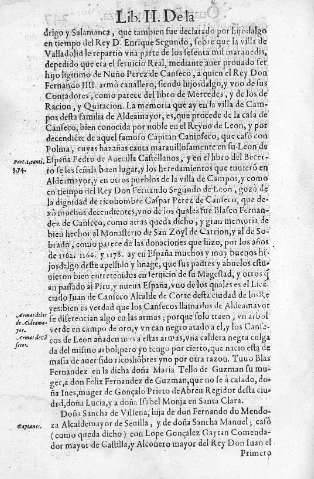 Lib. II. De la
drigo y Salamanca, que tambien fue declarado por hijodalgo
en tiempo del Rey D. Enrique Segundo, sobre que la villa de
Valladolid le repartio vna parte de los sesenta mil marauedis,
depedido que era el seruicio Real, mediante auer prouado ser
hijo ligitimo de Nuño Perez de Canseco, a quien el Rey Don
Fernando IIII. armò cauallero, siendo hijosdalgo, y vno de sus
Contadores, como parece del libro de Mercedes, y de los de
Racion, y Quitacion. La memoria que ay en la villa de Cam-
pos desta familia de Aldeamayor, es, que procede de la casa de
Canseco, bien conocida por noble en el Reyno de Leon, y por
decendiete de aquel famoso Capitan que casò con
Polma, cuyas hazañas canta marauillosamente en su Leon de
España Pedro de Castellanos, y en el libro del Bezer-
ro se les señala buen lugar, y los heredamientos que tuuierō en
Aldeamayor, y en otros pueblos de la villa de Campos, y como
en tiempo del Rey Don Fernando Segundo de Leon, gozò de
la dignidad de ricohombre Gaspar Perez de Canseco, que de-
xò muchos decendientes, vno de los quales fue Blasco Fernan-
dez de Canseco, como acras queda dicho, y gran memoria de
bien hechor al Monasterio de San Zoyl de Carrion, y al de So-
brado, como parece de las donaciones que hizo, por los años
de 1162. 1166. y 1178. ay en España muchos y muy buenos hi-
josdalgo deste apellido y linage, que sus padres y abuelos estu-
uieron bien entretenidos en seruicio de su Magestad, y otros q̄
an passado al Piru, y nueua España, vno de los quales es el Licē-
ciado Iuan de Canseco Alcalde de Corte desta ciudad de los
yes: bien es verdad que los Cansecos llamados de Aldeamayor
se diferencian algo en las armas, porque solo traen, vn arbol
verde en campo de oro, y vn can negro atado a el, y los Canse-
cos de Leon añaden a estas armas, vna caldera negra colga
da del mismo arbol, pero yo tengo por cierto, que nacio esta de
masia de auer sido ricoshōbres y no por otra razon. Tuuo Blas
Fernandez en la dicha doña Maria Tello de Guzman su mu-
ger, a don Feliz Fernandez de Guzman, que no se à casado, do-
ña Ines, muger de Gonçalo Prieto de Abreu Regidor desta ciu-
dad, doña Lucia, y a doña Isabel Monja en Santa Clara.
Doña Sancha de Villena, hija de don Fernando do Mendo-
za Alcaldemayor de Seuilla, y de doña Sancha Manuel, casò
(como queda dicho) con Lope Gonçalez Gaytan Comenda-
dor mayor de Castilla, y Alconero mayor del Rey Don Iuan el
Primero